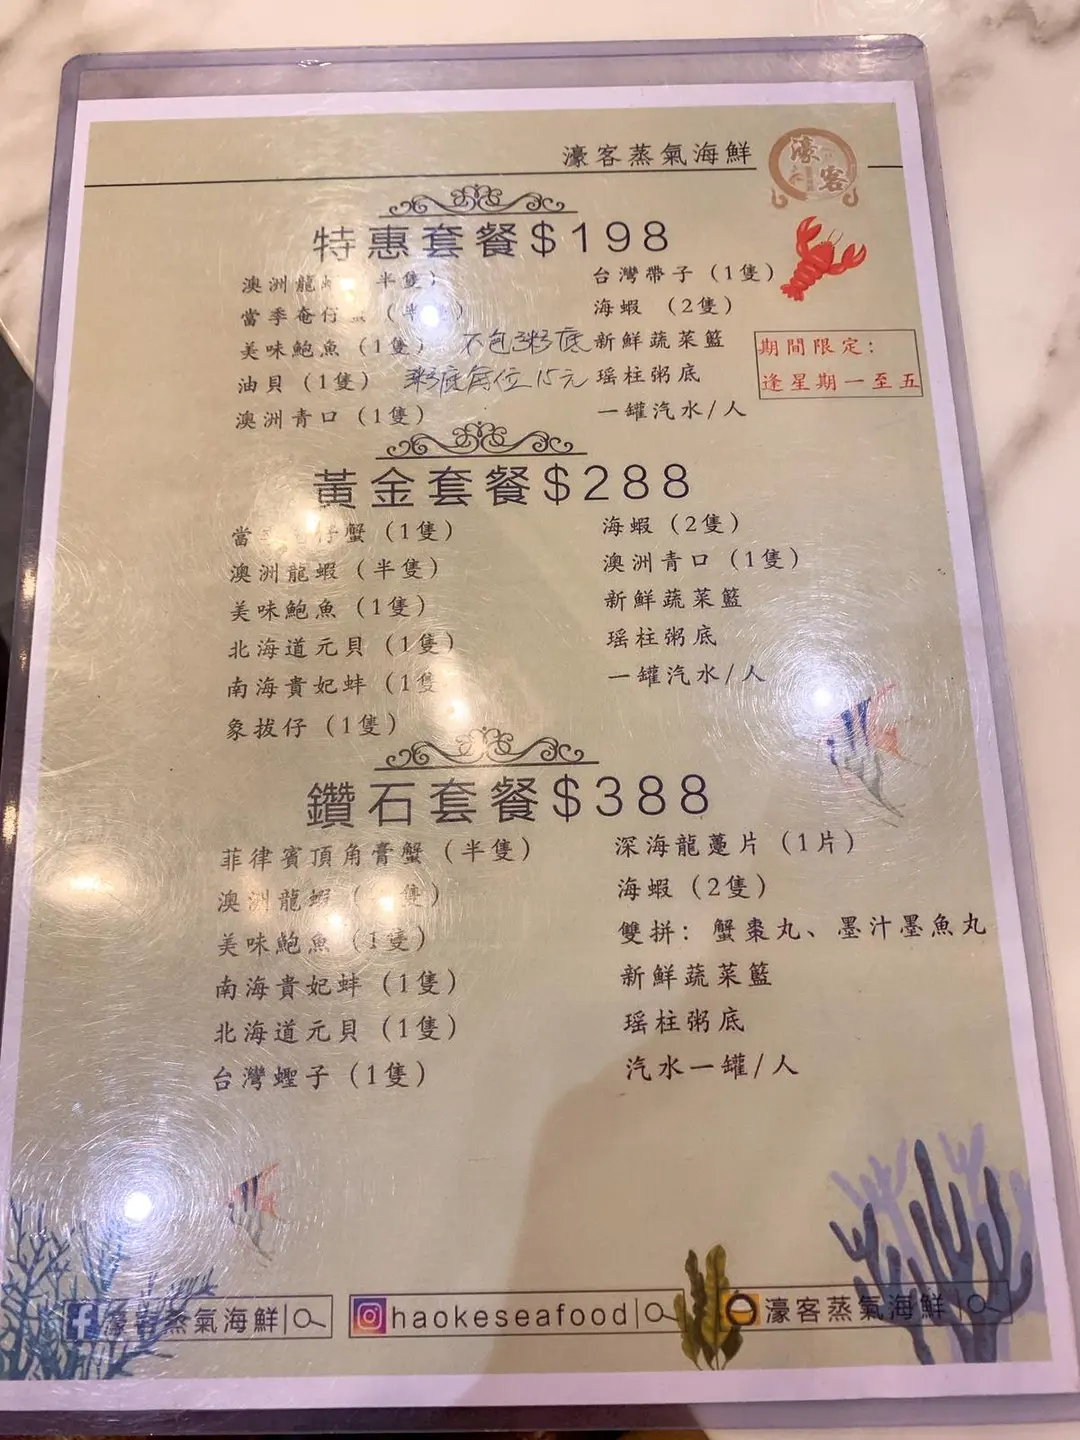 濠客蒸氣海鮮
濠客
特惠套餐$198
澳洲龍 半隻)
當季奄仔 (半
美味鮑魚 (1隻)
油貝 (1隻)
澳洲青口 (1隻)
不包粥底
粥底每位15元
台灣帶子 (1隻)
海蝦 (2隻)
新鮮蔬菜籃
瑤柱粥底
一罐汽水/人
期間限定:
逢星期一至五
黃金套餐$288
當 仔蟹 (1隻)
澳洲龍蝦 (半隻)
美味鮑魚 (1隻)
北海道元貝 (1隻)
南海貴妃蚌 (1隻
象拔仔 (1隻)
海蝦 (2隻)
澳洲青口 (1隻)
新鮮蔬菜籃
瑤柱粥底
一罐汽水/人
鑽石套餐$388
菲律賓頂角膏蟹 (半隻)
澳洲龍蝦 ( 隻)
美味鮑魚 (1隻)
南海貴妃蚌 (1隻)
北海道元貝 (1隻)
台灣蟶子 (1隻)
深海龍躉片 (1片)
海蝦 (2隻)
雙拼: 蟹棗丸、墨汁墨魚丸
新鮮蔬菜籃
瑤柱粥底
汽水一罐/人
濠客蒸氣海鮮
haokeseafood
濠客蒸氣海鮮